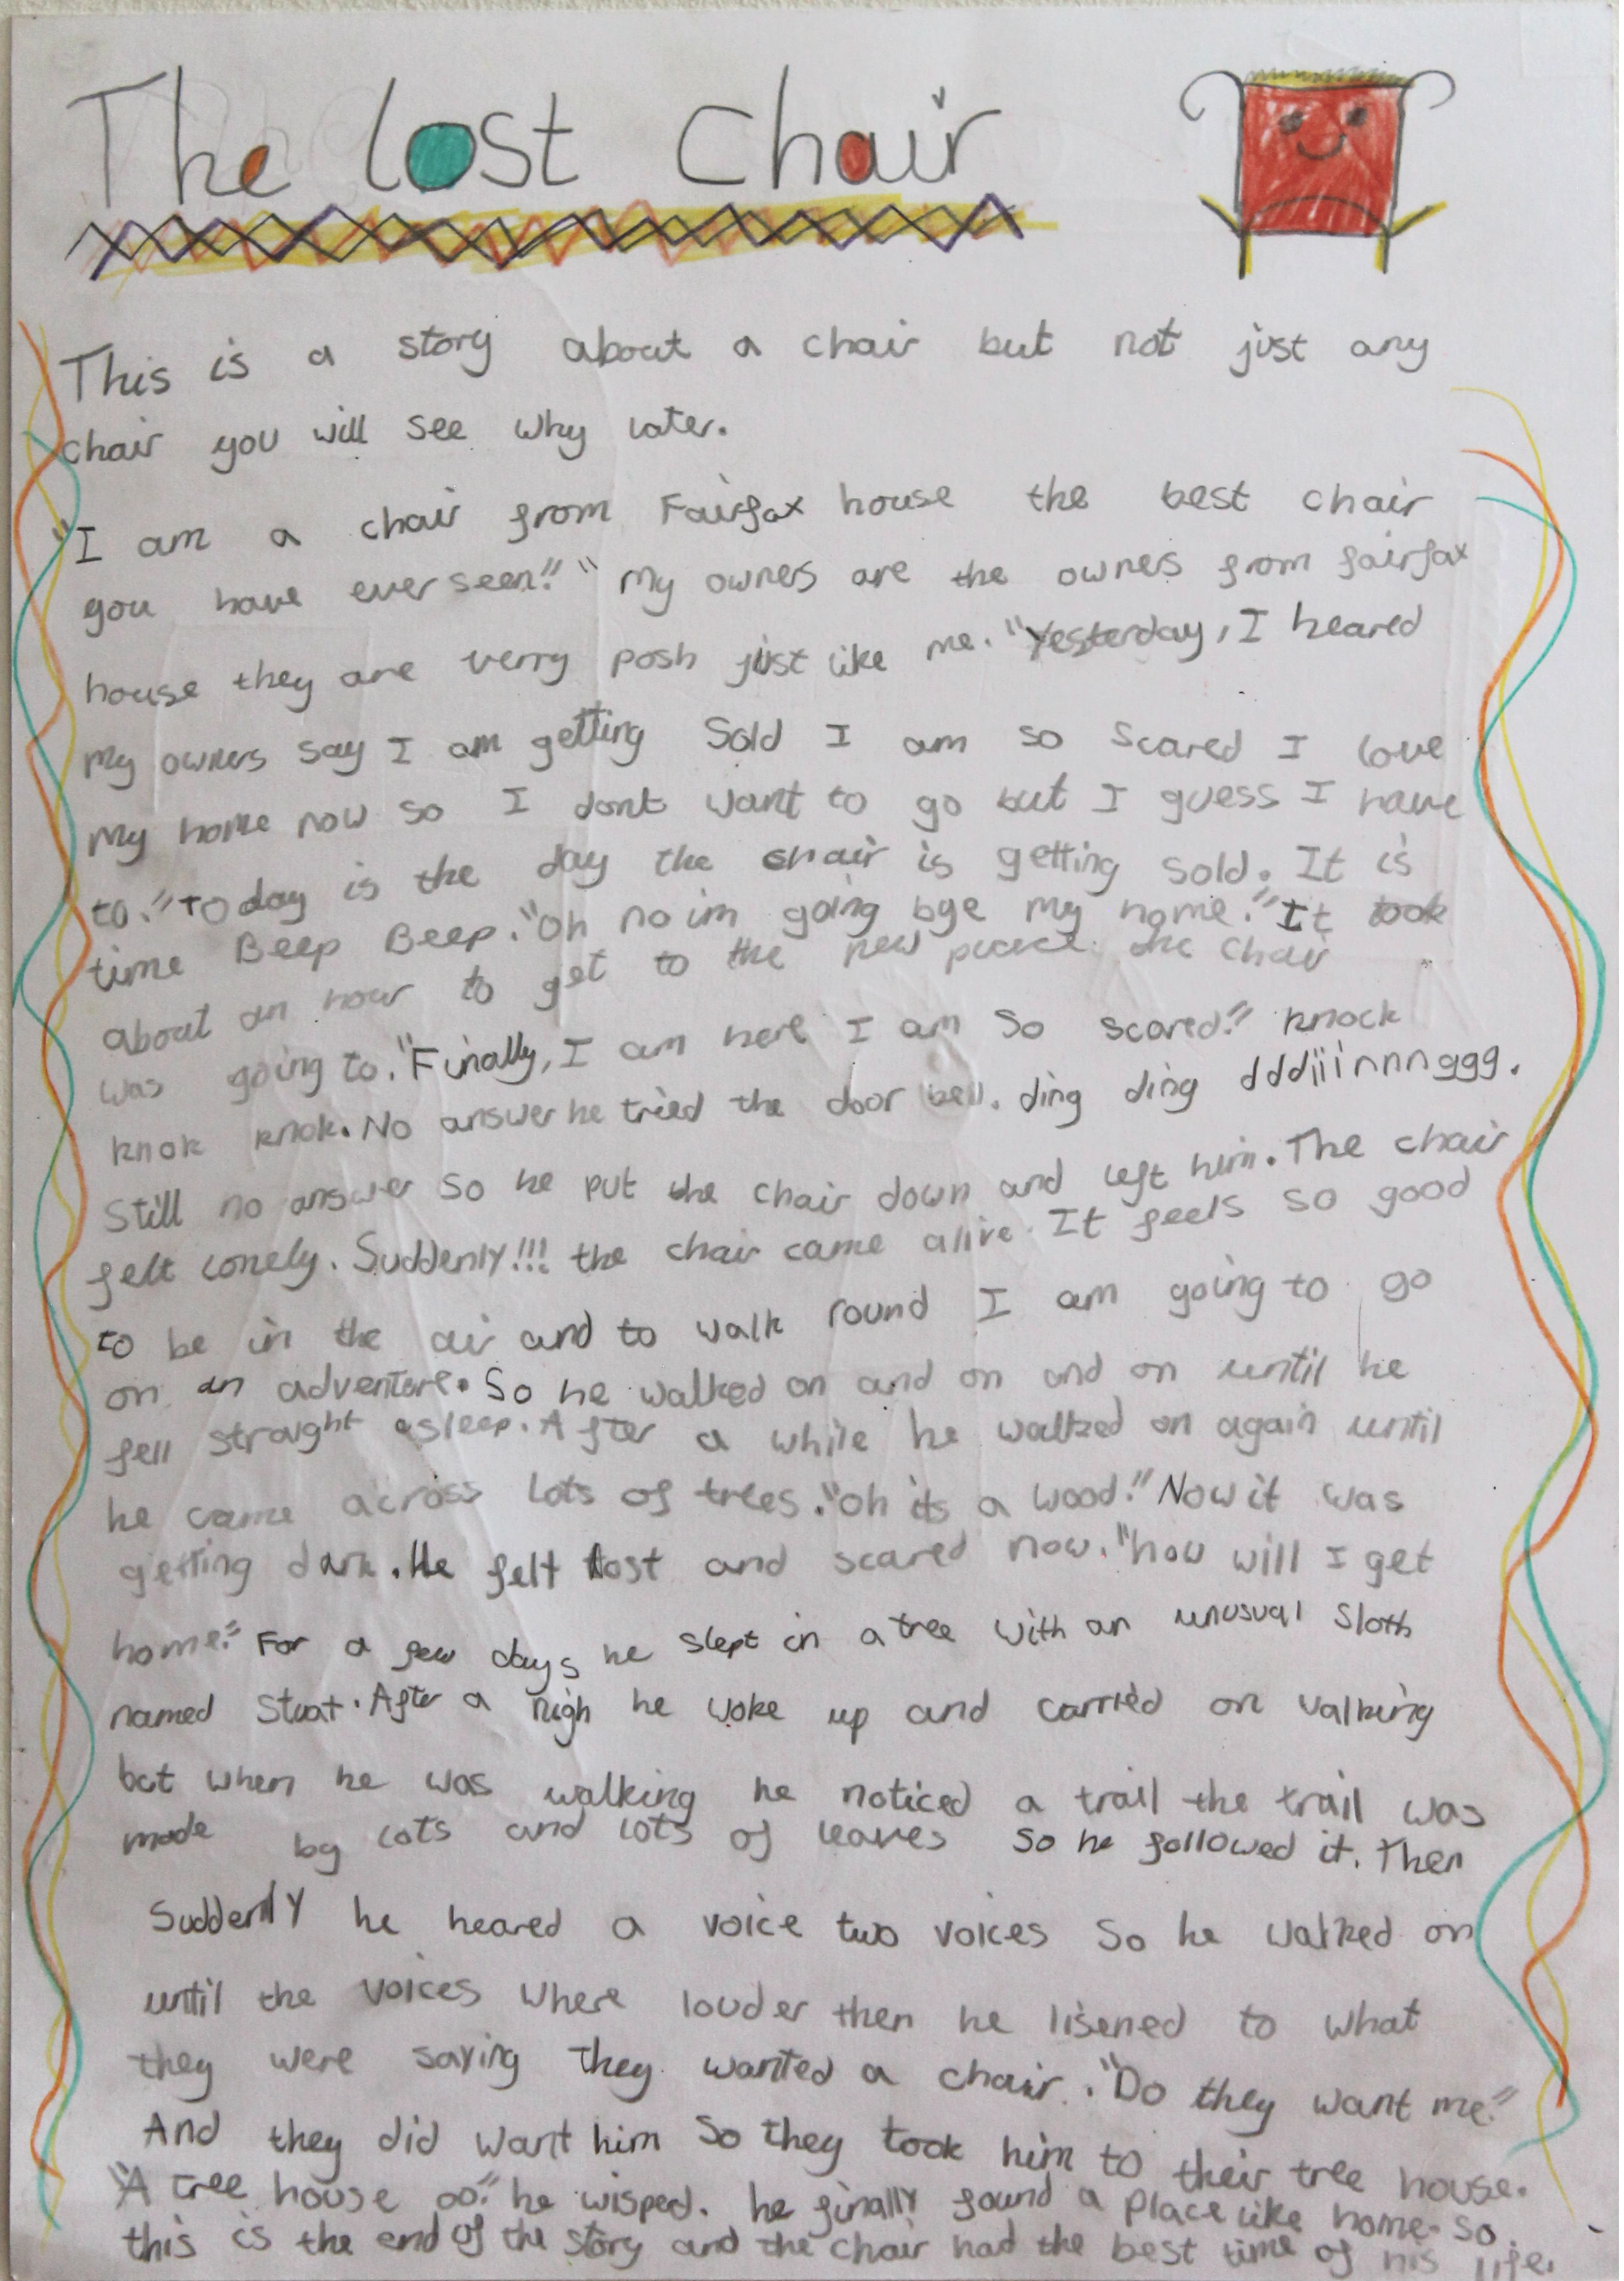 The lost Chair
This is a story about a chair but not just any
chair you will see why later.
"I am a chair from Fairfax house the best chair
you have ever seen!!" my owners are the owners from fairfax
house they are verry posh just like me. "Yesterday, I heared
my owners say I am getting Sold I am so scared I love
my home now so I dont want to go but I guess I have
to." Today is the day the chair is getting sold. It is
time Beep Beep. "Oh no im going bye my home." It took
about an hour to get to the new peace. the chair
was going to. "Finally, I am here I am so scared." knock
knok knok. No answer he tried the door bell. ding ding dddiiinnnggg.
Still no answer so he put the chair down and left him. The chair
felt lonely. Suddenly!!! the chair came alive. It feels so good
to be in the air and to walk round I am going to go
on an adventure. So he walked on and on and on until he
fell straight asleep. After a while he walked on again until
he came across lots of trees. "Oh its a wood." Now it was
getting dark. He felt lost and scared now. "how will I get
home." For a few days he slept in a tree with an unusual Sloth
named Stuat. After a nigh he woke up and carried on valking
but when he was walking he noticed a trail the trail was
made by lots and lots of leaves so he followed it. Then
Suddenly he heared a voice two voices so he walked on
until the voices where louder then he lisened to what
they were saying they wanted a chair. "Do they want me."
And they did want him so they took him to their tree house.
"A tree house oo." he wisped. he finally found a place like home. So
this is the end of the story and the chair had the best time of his life.